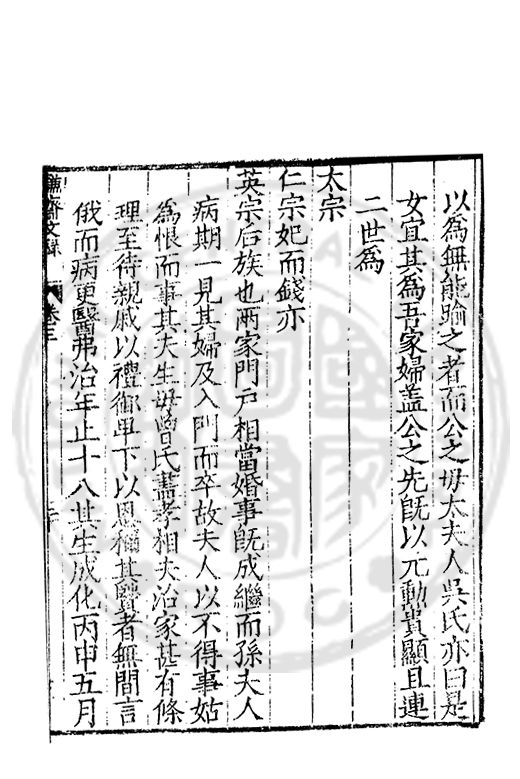 以爲無能踰之者而公之母太夫人吳氏亦曰是
女宜其爲吾家婦蓋公之先旣以元勳貴顯且連
二世爲
太宗
仁宗妃而錢亦
英宗后族也兩家門戸相當婚事旣成繼而孫夫人
病期一見其婦及入門而卒故夫人以不得事姑
爲恨而事其夫生母曾氏蓋孝相夫治家甚有條
理至待親戚以禮御卑下以恩稱其賢者無間言
俄而病更醫弗治年止十八其生成化丙申五月
文錄
卷三